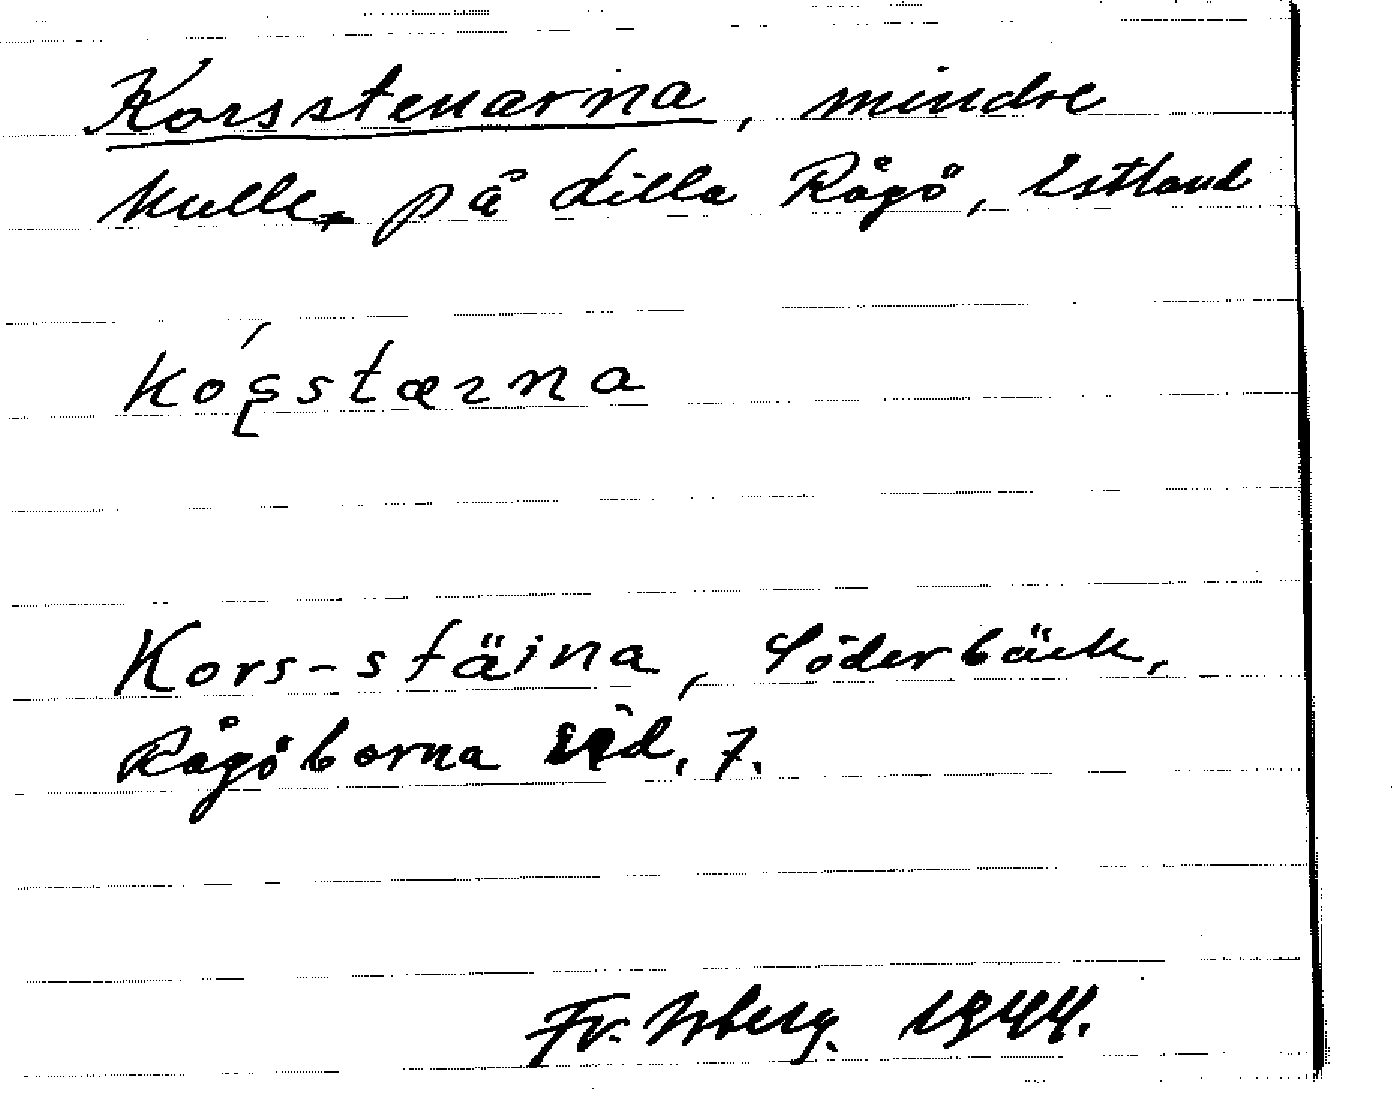 Korsstenarna, mindre
kulle på Lilla Rågö, Estland
Kors-stäina, Söderbäck,
Rågöborna sid. 7.
Fr. Wberg. 1944.